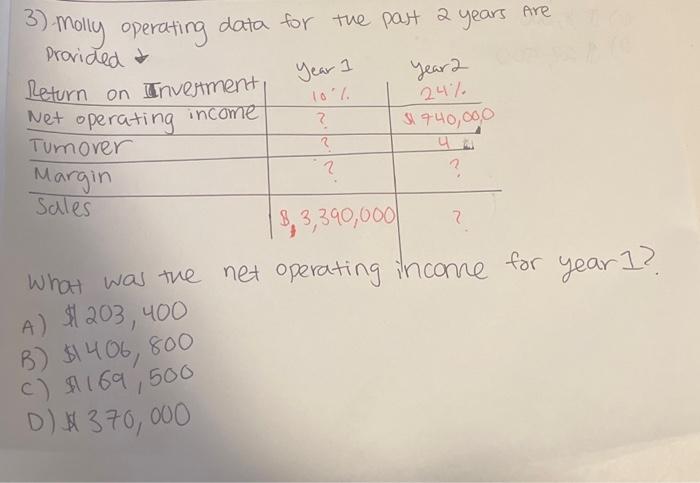 3) Molly operating data for the past 2 years Are
Provided
Year 1 Year 2
Return on Investment 10% 24%
Net operating income ? $ 740,000
Turnover ? 4
Margin ? ?
Sales $ 3,390,000 ?
What was the net operating income for year 1?
A) $ 203,400
B) $ 406,800
C) $ 169,500
D) $ 370,000